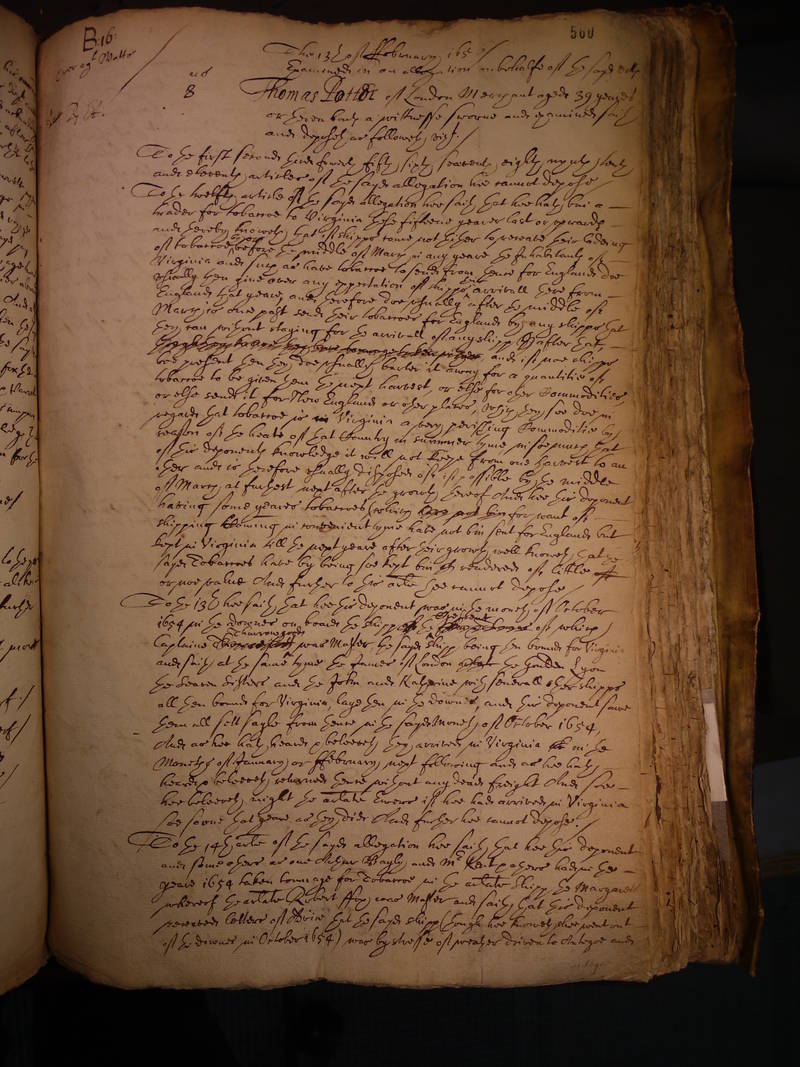 B:16:
560
The 13th of ffebruary 165
Examined in on allegation on behalfe of the sayd
8
Thomas Potter of London Merchant aged 39 yeares
or thereabouts a wittnesse sworne and examined saith
and deposeth as followeth vizt:/
To the first second third fowrth fifth sixth seaventh, eighth, nynth, tenth
and eleventh articles of the sayd allegation hee cannot depose/
To the twelfth article of the sayd allegation hee saith that hee hath bin a
trader for tobaccoe to Virginia these fifteene yeares last or upwards
and thereby knoweth, that if shipps come not thither to receave their ladeing
of tobaccoes before the middle of March in any yeare the Inhabitants of
Virginia and such as have tobaccoe to send from thence for England doe
usually then give over any expectation of shipps arrivall there from
England that yeare, and therefore doe usually after the middle of
March is once past send their tobaccoes for England by any shipps that
they can without staying for the arrivall of any shipp after that
and if noe shipps
bee present then they doe usually barter it away for a quantitie of
tobaccoe to be given them the next harvest, or else for other Commodities,
or else send it for New England or other places, which they soe doe in
regard that tobaccoe is in Virginia a very perishing Commoditie by
reason of the heate of that Countrey in summer tyme insomuch that
of his deponents knowledge it will not keepe from one harvest to an
other and is therefore usually disposed of if possible by the middle
of March at furthest next after the growth thereof And hee this deponent
having some yeares tobaccoes (which for want of
shipping coming in convenient tyme have not bin sent for England but
kept in Virginia till the next yeare after their growth well knoweth, that the
sayd Tobaccoes have by being soe kept bin rendered of little
or noe value And further to this article hee cannot depose/
To the 13th hee saith that hee this deponent was in the moneth of October
1654 in the Downes on board the shipp the of which
Captaine was Master the sayd shipp being then bound for Virginia
and saith at the same tyme the James of London the Golden Lyon
the Seaven Sisters and the John and Katherine with severall other shipps
all then bound for Virginia, laye then in the Downes, and this deponent sawe
them all sett sayle from thence in the sayd Moneth of October 1654,
And as hee hath heard & beleeveth they arrived in Virginia in the
Moneths of January or ffebruary next following and as hee hath
heard & beleeveth returned thence without any dead freight And soe
hee beleeveth might the arlate if hee had arrived in Virginia
soe soone that yeare as they did And further hee cannot depose./
To the 14th arlate of the sayd allegation hee saith that hee this deponent
and some others as one Arthur Bayly and Mr Kent & others had in the
yeare 1654 taken tonnage for Tobaccoe in the arlate shipp the Margarett
whereof the arlate Robert ffox was Master and saith that this deponent
receaved letters of Advice that the sayd shipp (though hee knoweth shee went out
of the downes in October 1654) was by stresse of weather driven to Antegoe and